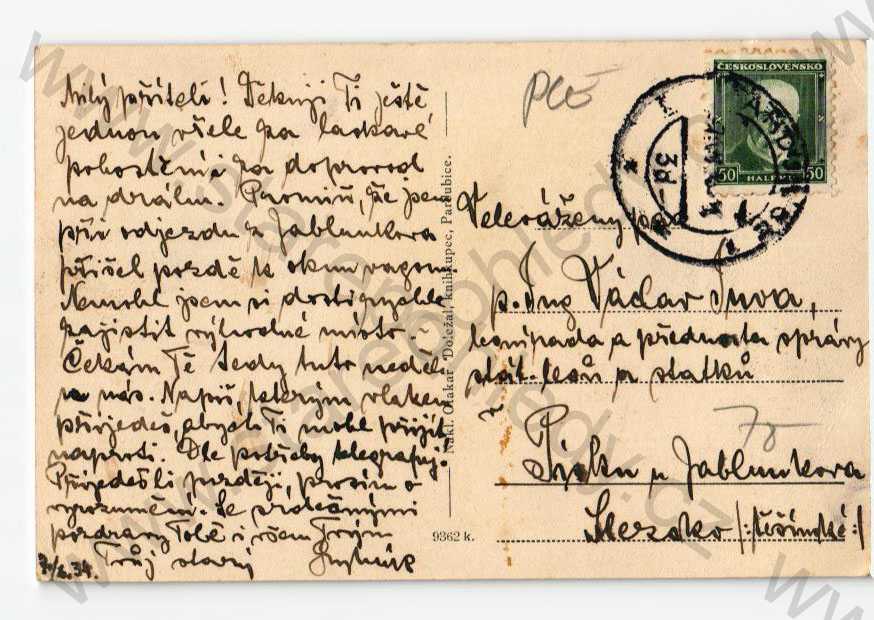 Milý příteli! Děkuji Ti ještě
jednou vřele za laskavé
pohoštění a za doprovod
na dráhu. Promiň, že jsem
při odjezdu z Jablunkova
přišel pozdě k oknu vagonu.
Nemohl jsem si dosti rychle
zajistit výhodné místo
Čekám Tě tedy tuto neděli
u nás. Napiš, kterým vlakem
přijedeš, abych Ti mohl přijít
naproti. Dle potřeby telegrafuj.
Přijedeš-li později, prosím o
vyrozumění. Se srdečnými
pozdravy Tobě i všem Tvým
Tvůj starý
34.
Nakl. Otakar Doležal, knihkupec, Pardubice.
9362 k.
ČESKOSLOVENSKO
50 HALÉŘŮ 50
PARDUBICE
Velevážený pan
p. Ing Václav
a přednosta správy
stát. lesů a statků
v
Písku u Jablunkova
Slezsko /:těšínské:/
75
www.starepohledy.cz